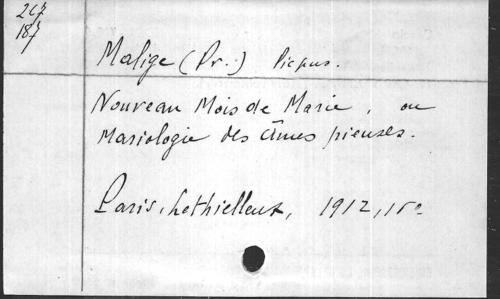 267
187
Malige (Pr.) Picpus.
Nouveau Mois de Marie, ou
Mariologie des âmes pieuses.
Paris, Lethielleux, 1912, 15°